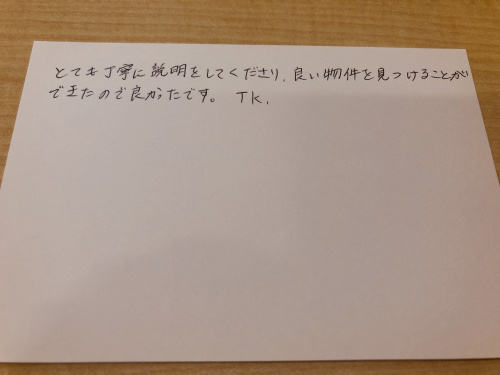 とても丁寧に説明をしてくださり、良い物件を見つけることが
できたので良かったです。 TK.